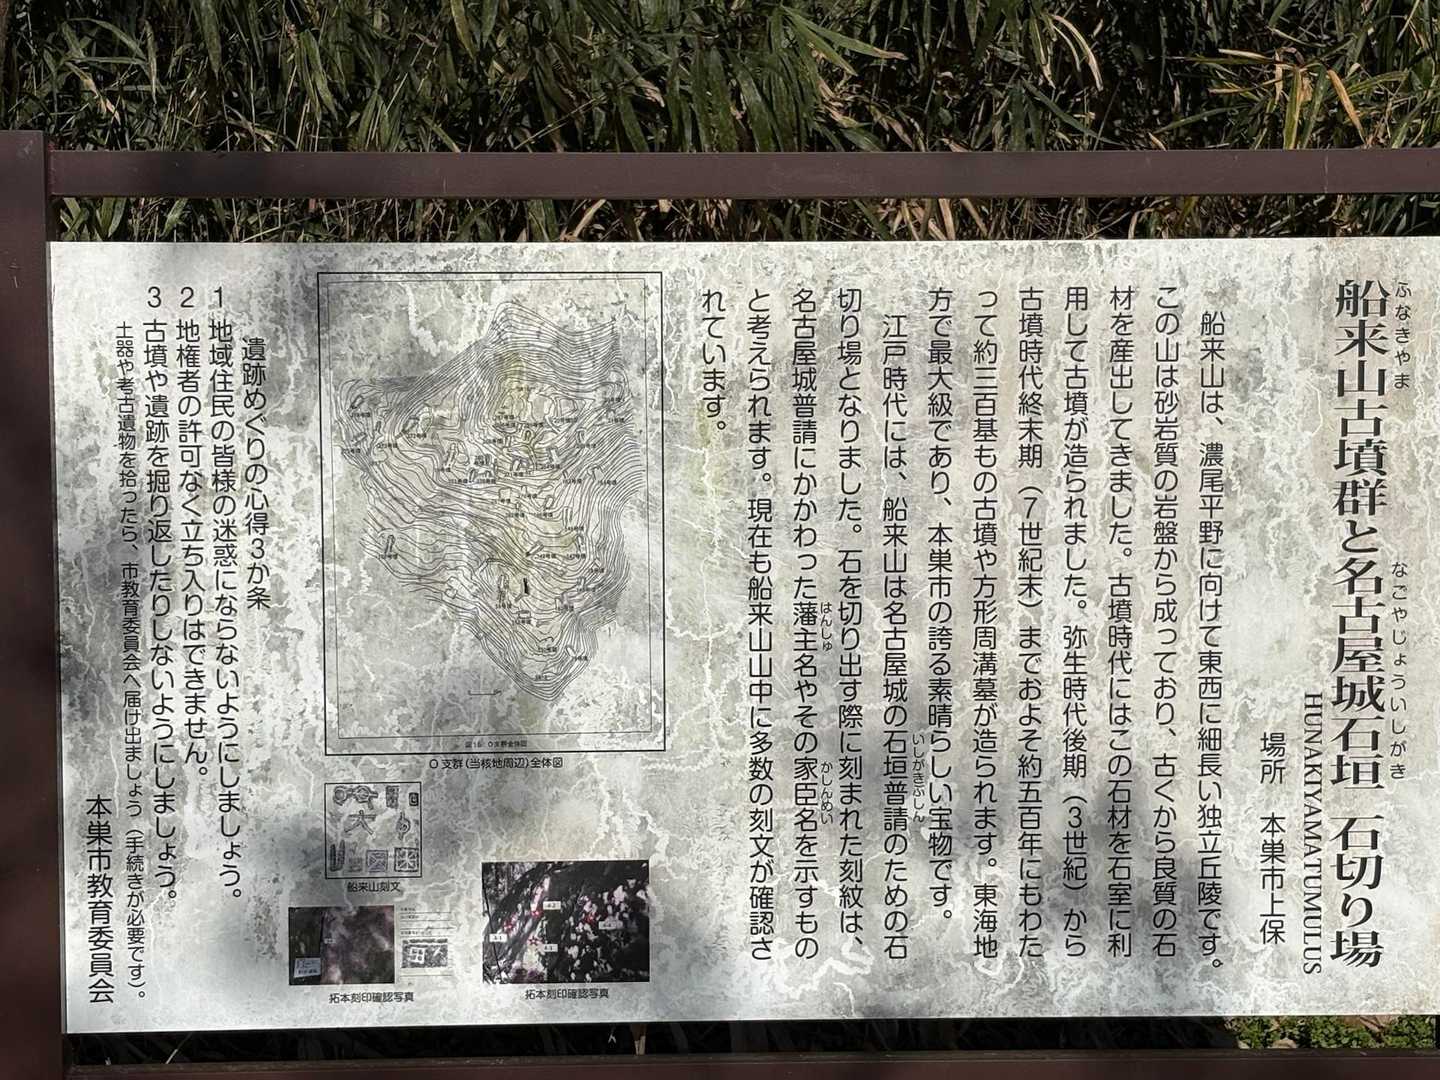 船来山古墳群と名古屋城石垣 石切り場
ふなきやま
なごやじょういしがき
HUNAKIYAMATUMULUS
場所 本巣市上保
船来山は、濃尾平野に向けて東西に細長い独立丘陵です。
この山は砂岩質の岩盤から成っており、古くから良質の石
材を産出してきました。古墳時代にはこの石材を石室に利
用して古墳が造られました。弥生時代後期（3世紀）から
古墳時代終末期（7世紀末）までおよそ約五百年にもわた
って約三百基もの古墳や方形周溝墓が造られます。東海地
方で最大級であり、本巣市の誇る素晴らしい宝物です。
江戸時代には、船来山は名古屋城の石垣普請のための石
いしがきぶしん
切り場となりました。石を切り出す際に刻まれた刻紋は、
名古屋城普請にかかわった藩主名やその家臣名を示すもの
はんしゅ
かしんめい
と考えられます。現在も船来山山中に多数の刻文が確認さ
れています。
図15 O支群全体図
O支群(当核地周辺)全体図
船来山刻文
拓本刻印確認写真
拓本刻印確認写真
遺跡めぐりの心得3か条
1 地域住民の皆様の迷惑にならないようにしましょう。
2 地権者の許可なく立ち入りはできません。
3 古墳や遺跡を掘り返したりしないようにしましょう。
土器や考古遺物を拾ったら、市教育委員会へ届け出ましょう（手続きが必要です）。
本巣市教育委員会